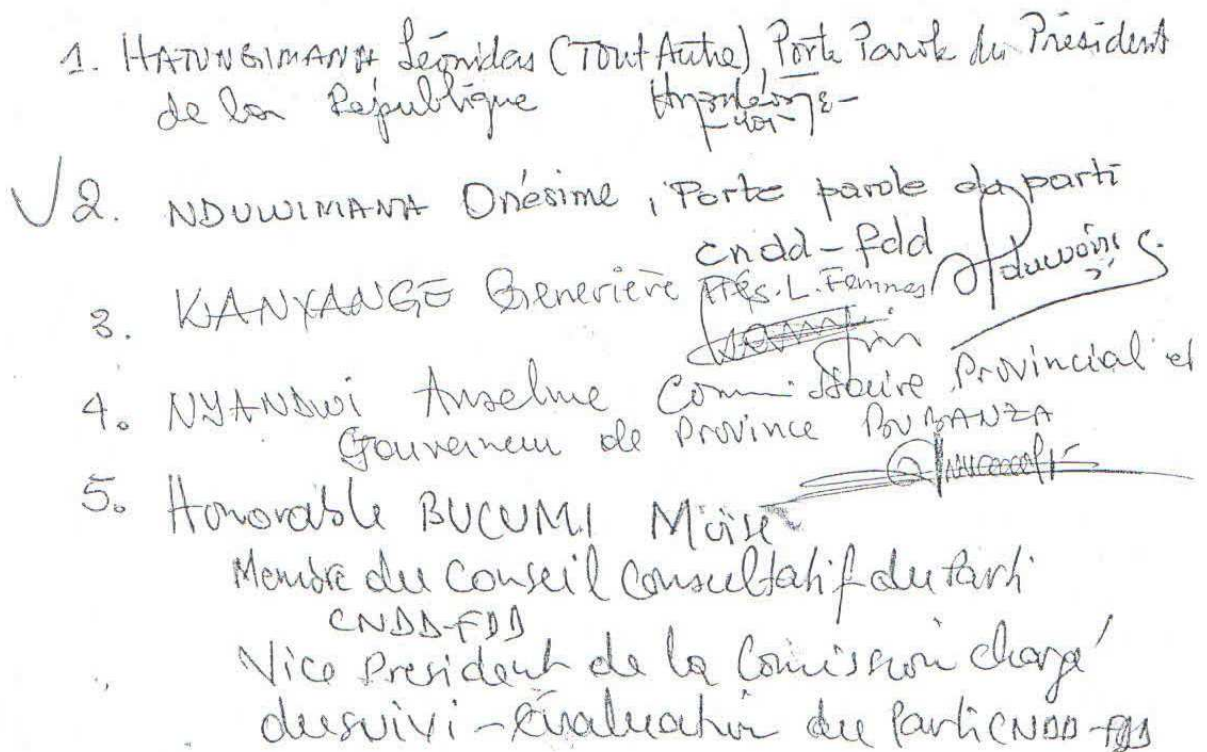 1. HATUNGIMANA Léonidas (Tout Autre), Porte Parole du Président
de la République
V 2. NDUWIMANA Onésime, Porte parole du parti
cndd-fdd
3. KANYANGE Generière Prés. L. Femmes
4. NYANDWI Anselme Commissaire Provincial et
Gouverneur de Province BUBANZA
5. Honorable BUCUMI Moïse
Membre du Conseil Consultatif du Parti
CNDD-FDD
Vice President de la Comission chargé
du suivi-évaluation du Parti CNDD-FDD